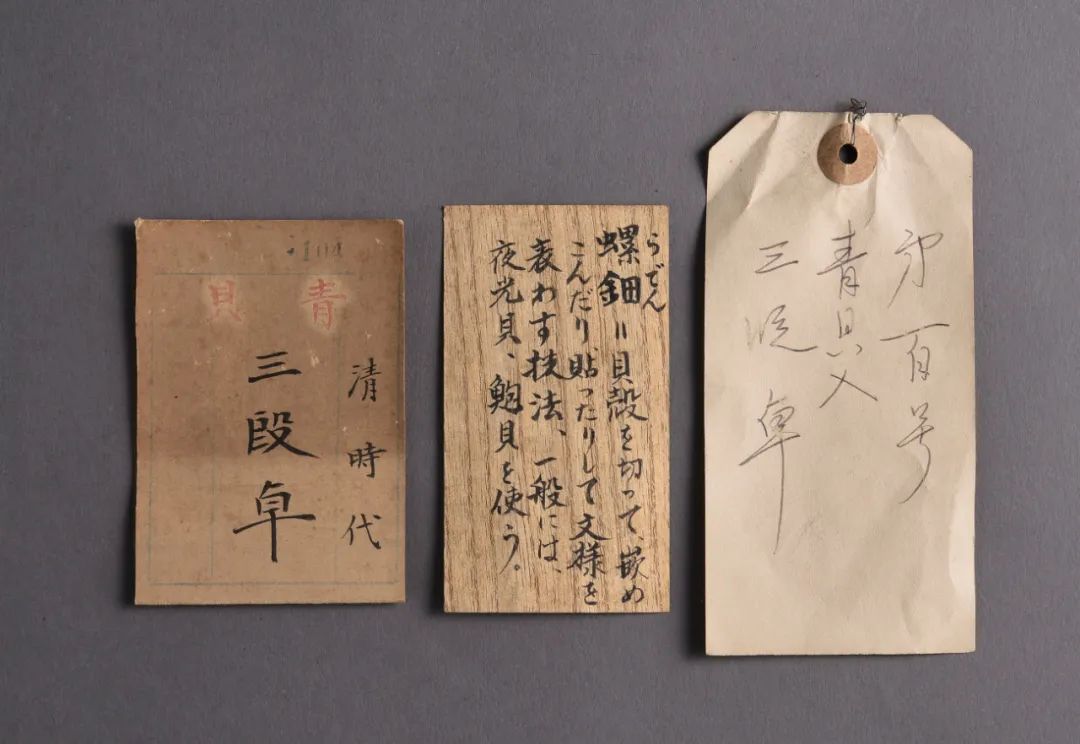 青貝
清時代
三段卓
らでん
螺鈿=貝殻を切って、嵌め
こんだり、貼ったりして文様を
表わす技法、一般には、
夜光貝、鮑貝を使う。
第百号
青貝入
三段卓